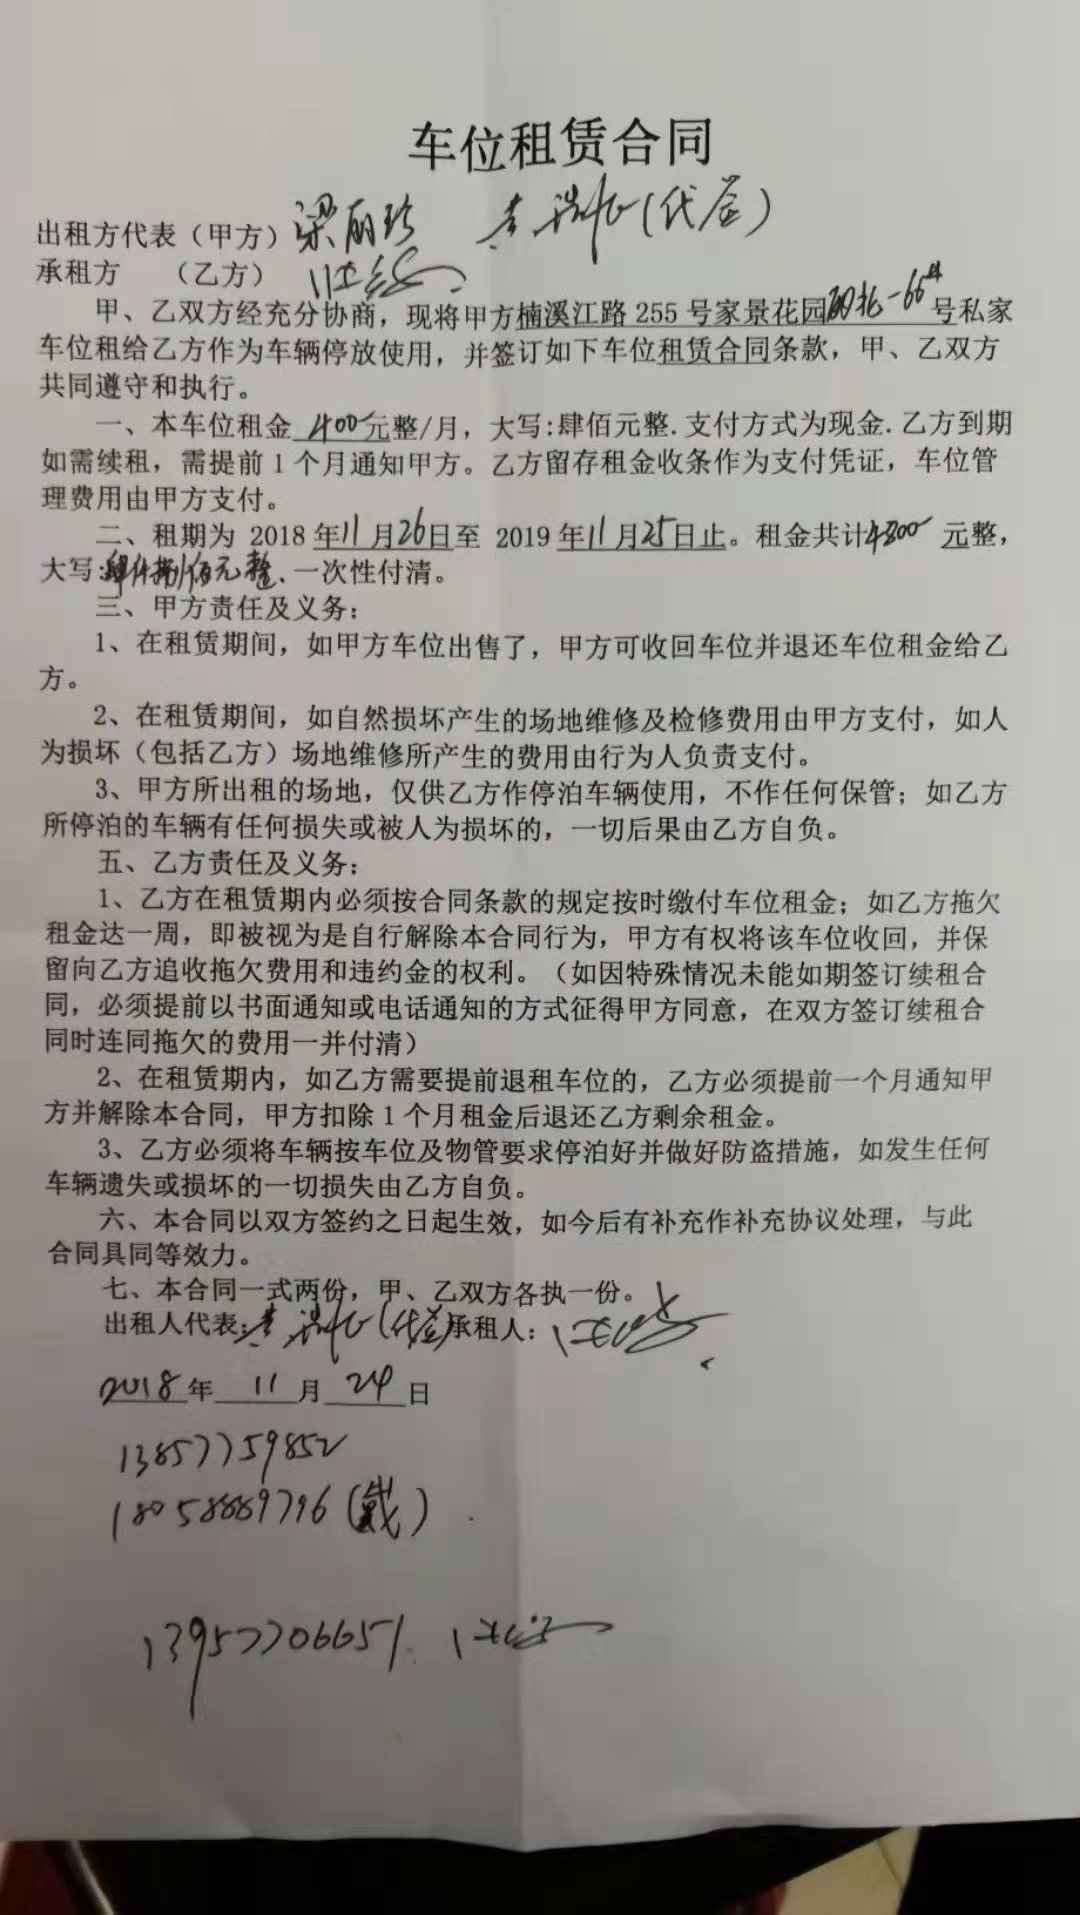 车位租赁合同
出租方代表（甲方）梁丽珍 黄 (代签)
承租方 （乙方）
甲、乙双方经充分协商，现将甲方楠溪江路 255 号家景花园 北-66# 号私家
车位租给乙方作为车辆停放使用，并签订如下车位租赁合同条款，甲、乙双方
共同遵守和执行。
一、本车位租金 400 元整/月，大写:肆佰元整.支付方式为现金.乙方到期
如需续租，需提前 1 个月通知甲方。乙方留存租金收条作为支付凭证，车位管
理费用由甲方支付。
二、租期为 2018 年 11 月 26 日至 2019 年 11 月 25 日止。租金共计 4800 元整，
大写:肆仟捌佰元整.一次性付清。
三、甲方责任及义务：
1、在租赁期间，如甲方车位出售了，甲方可收回车位并退还车位租金给乙
方。
2、在租赁期间，如自然损坏产生的场地维修及检修费用由甲方支付，如人
为损坏（包括乙方）场地维修所产生的费用由行为人负责支付。
3、甲方所出租的场地，仅供乙方作停泊车辆使用，不作任何保管；如乙方
所停泊的车辆有任何损失或被人为损坏的，一切后果由乙方自负。
五、乙方责任及义务：
1、乙方在租赁期内必须按合同条款的规定按时缴付车位租金；如乙方拖欠
租金达一周，即被视为是自行解除本合同行为，甲方有权将该车位收回，并保
留向乙方追收拖欠费用和违约金的权利。（如因特殊情况未能如期签订续租合
同，必须提前以书面通知或电话通知的方式征得甲方同意，在双方签订续租合
同时连同拖欠的费用一并付清）
2、在租赁期内，如乙方需要提前退租车位的，乙方必须提前一个月通知甲
方并解除本合同，甲方扣除 1 个月租金后退还乙方剩余租金。
3、乙方必须将车辆按车位及物管要求停泊好并做好防盗措施，如发生任何
车辆遗失或损坏的一切损失由乙方自负。
六、本合同以双方签约之日起生效，如今后有补充作补充协议处理，与此
合同具同等效力。
七、本合同一式两份，甲、乙双方各执一份。
出租人代表:黄 (代签)承租人:
2018 年 11 月 24 日
13857759852
18058889796 (戴)
13957706651